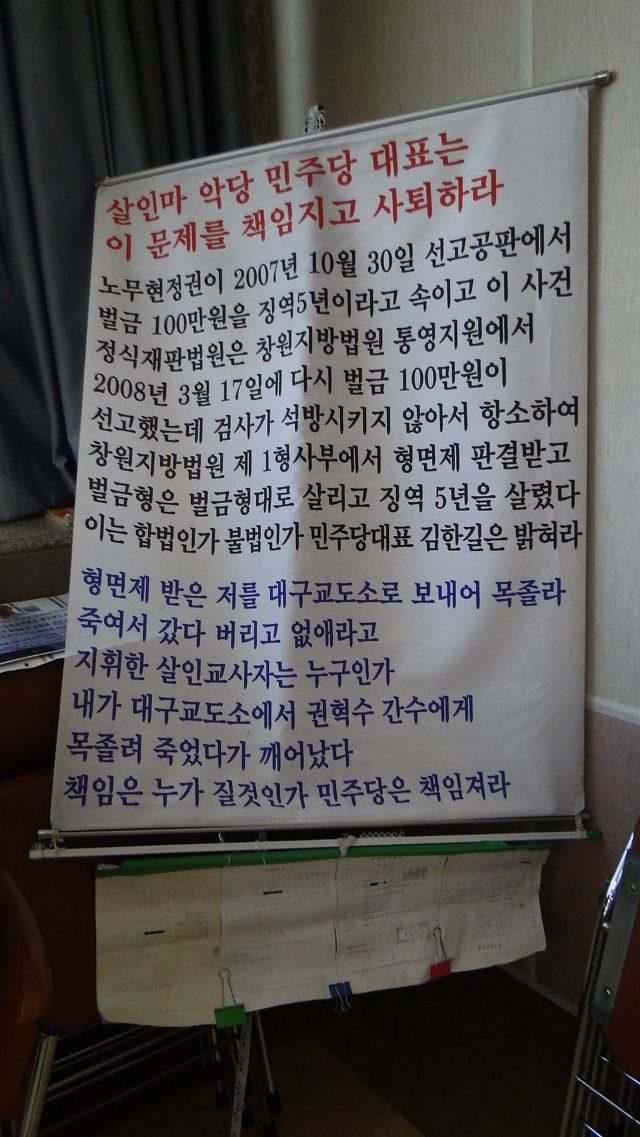 살인마 악당 민주당 대표는
이 문제를 책임지고 사퇴하라
노무현정권이 2007년 10월 30일 선고공판에서
벌금 100만원을 징역5년이라고 속이고 이 사건
정식재판법원은 창원지방법원 통영지원에서
2008년 3월 17일에 다시 벌금 100만원이
선고했는데 검사가 석방시키지 않아서 항소하여
창원지방법원 제 1형사부에서 형면제 판결받고
벌금형은 벌금형대로 살리고 징역 5년을 살렸다
이는 합법인가 불법인가 민주당대표 김한길은 밝혀라
형면제 받은 저를 대구교도소로 보내어 목졸라
죽여서 갔다 버리고 없애라고
지휘한 살인교사자는 누구인가
내가 대구교도소에서 권혁수 간수에게
목졸려 죽었다가 깨어났다
책임은 누가 질것인가 민주당은 책임져라